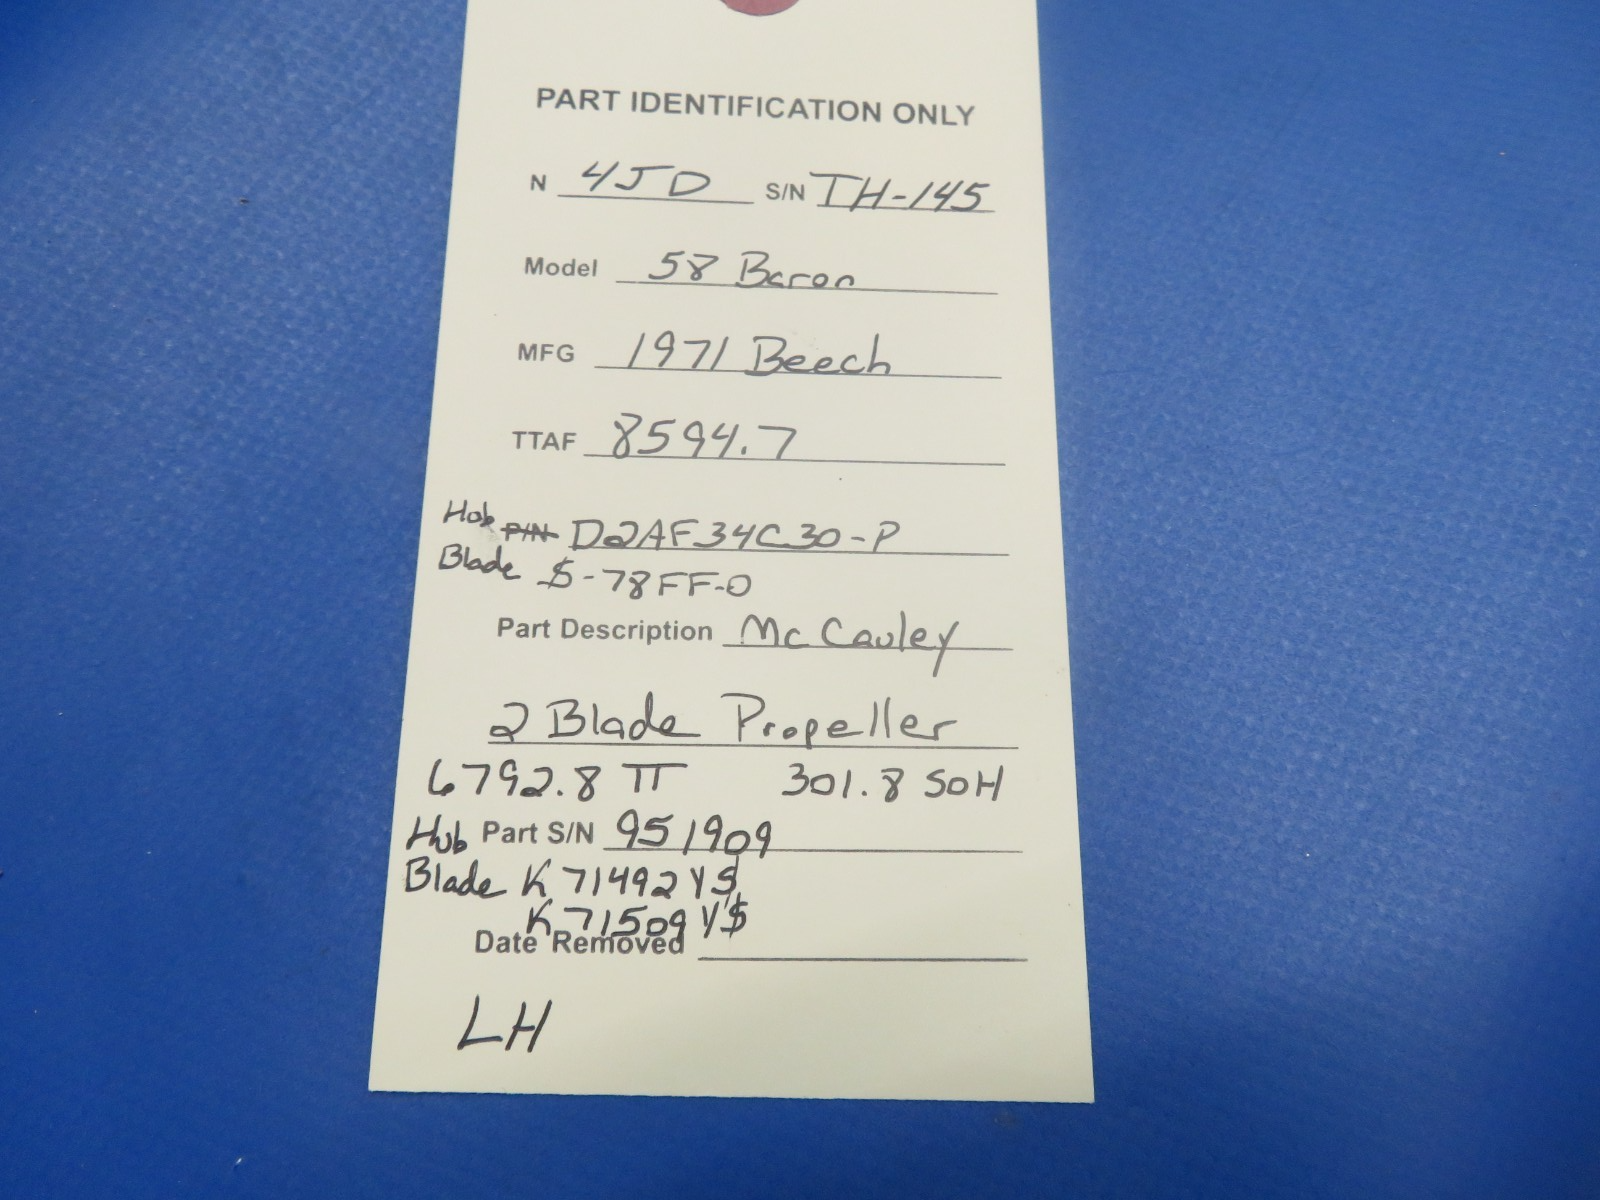 PART IDENTIFICATION ONLY
N 4JD S/N TH-145
Model 58 Baron
MFG 1971 Beech
TTAF 8594.7
Hub P/N D2AF34C30-P
Blade $-78FF-0
Part Description McCauley
2 Blade Propeller
6792.8 TT 301.8 SOH
Hub Part S/N 951909
Blade K71492YS
K71509Y$
Date Removed
LH